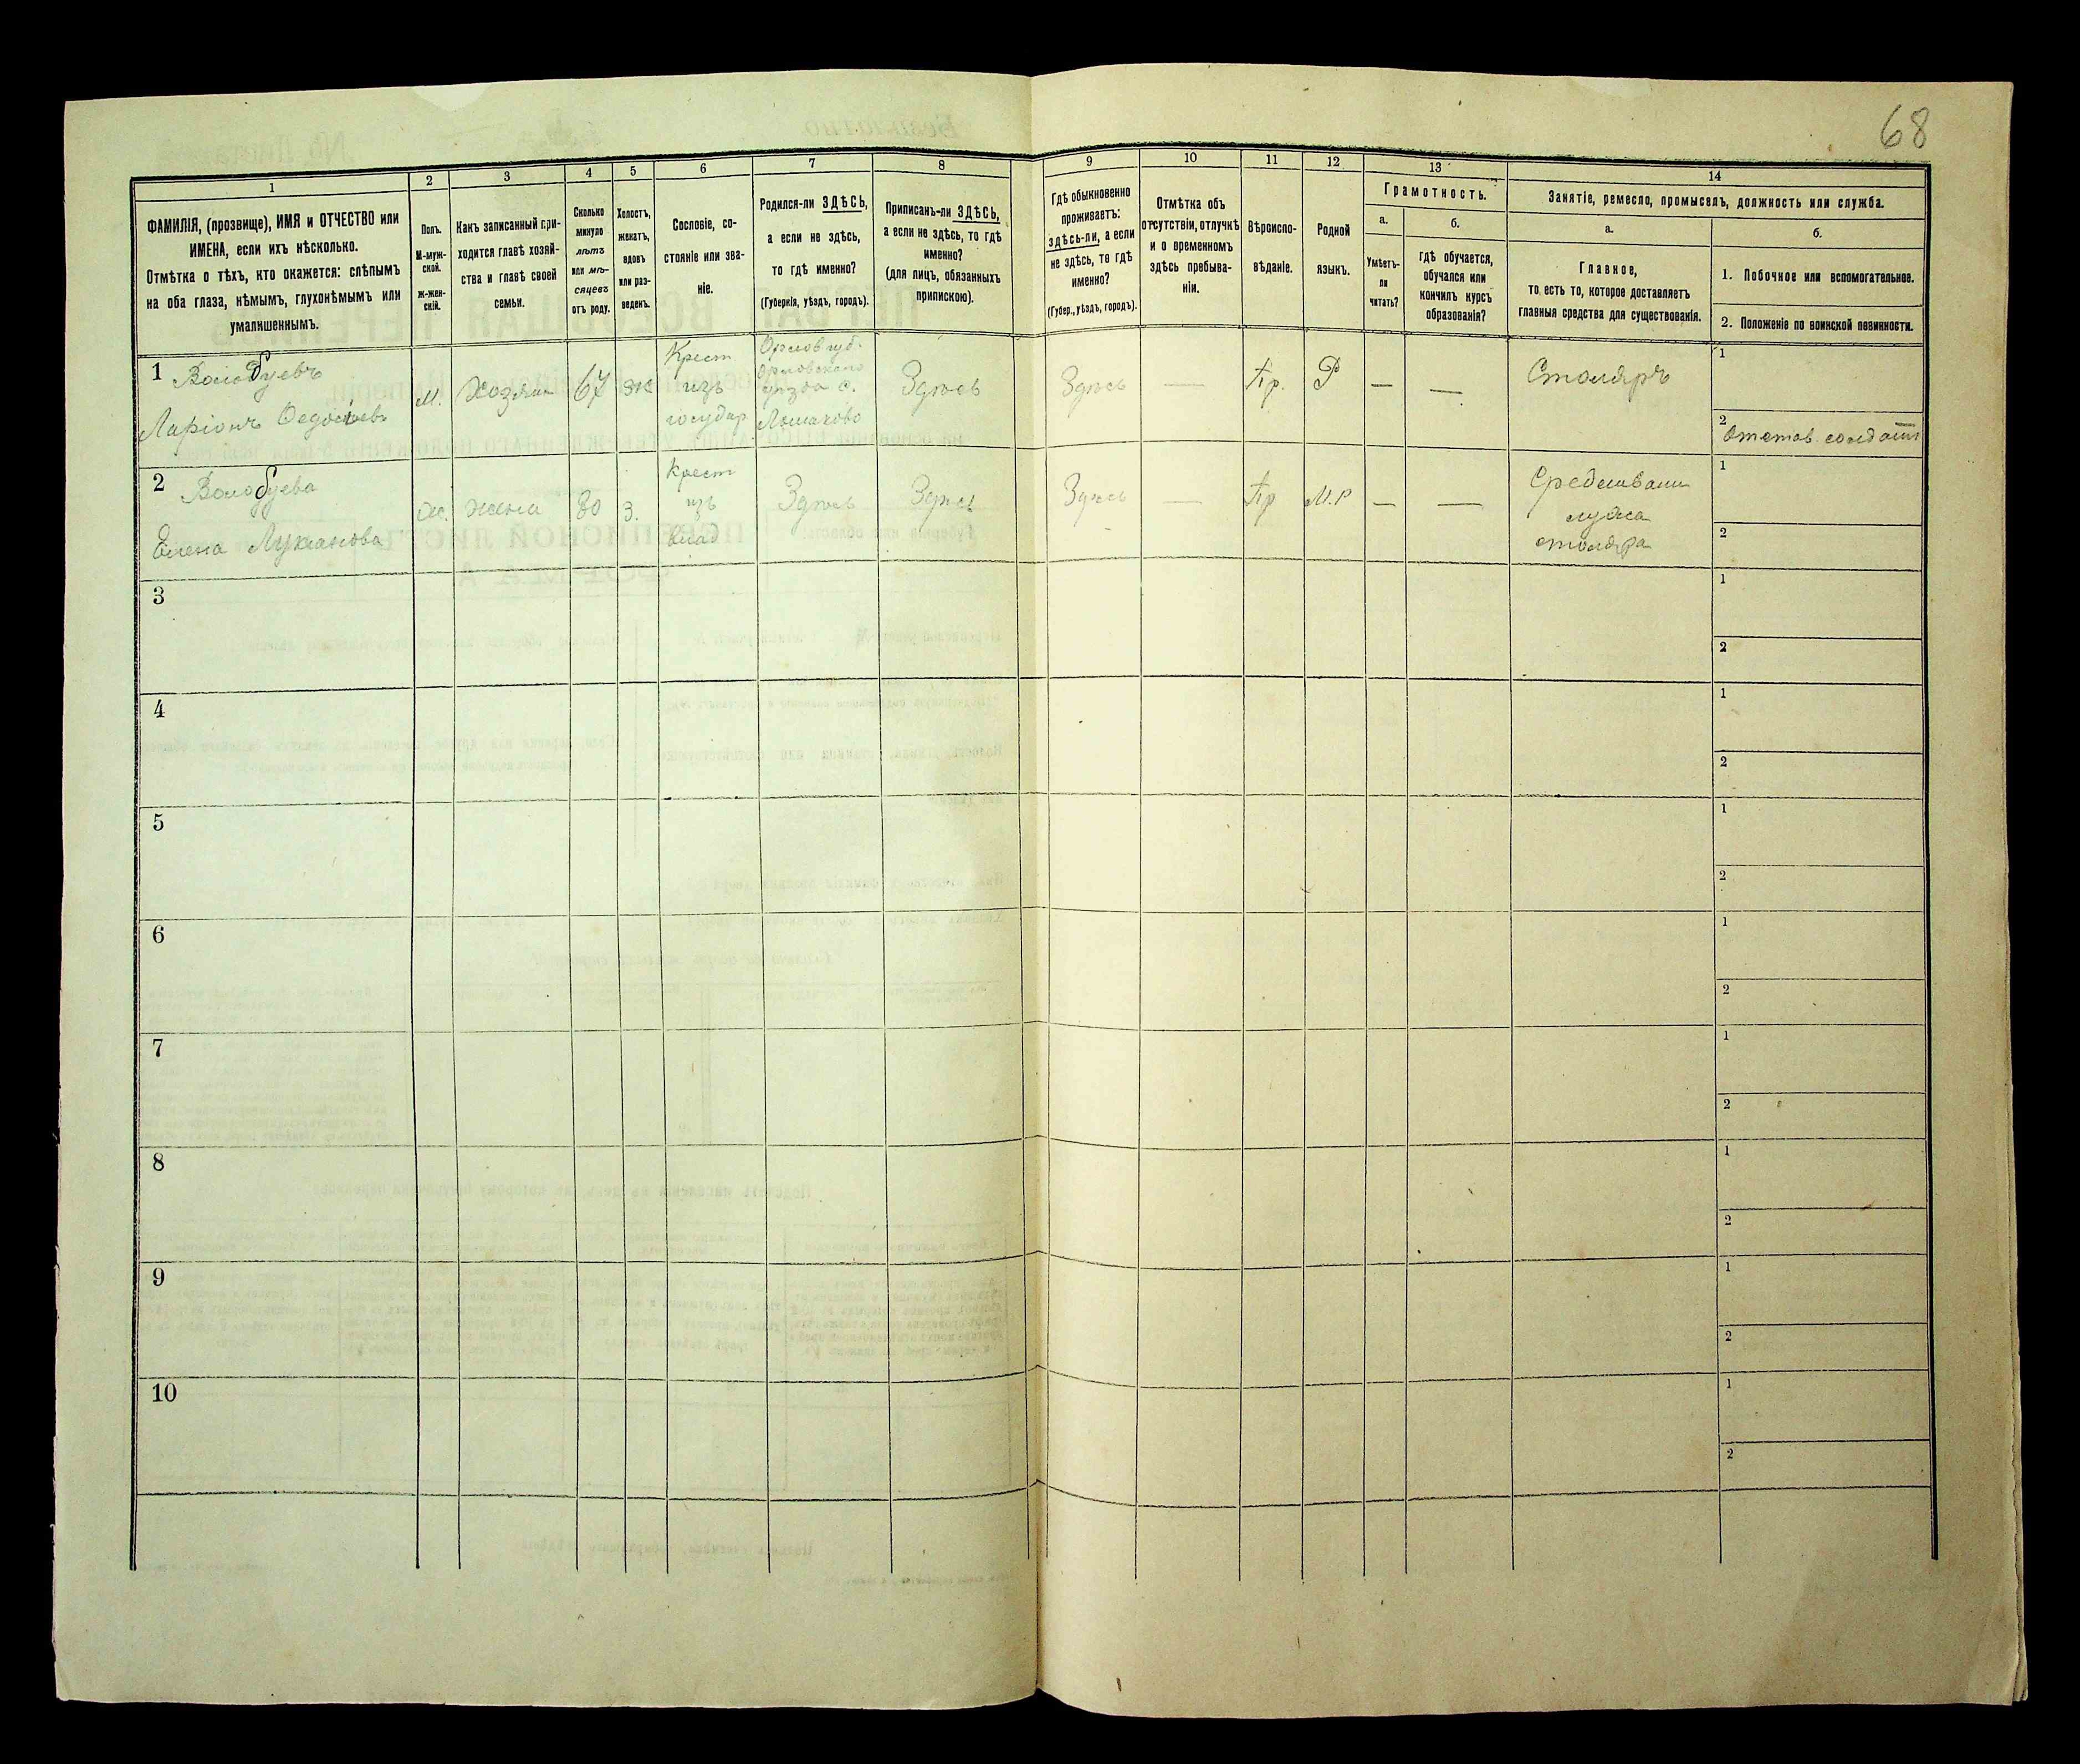 68
1
2
3
4
5
6
7
8
9
10
11
12
13
14
ФАМИЛІЯ, (прозвище), ИМЯ и ОТЧЕСТВО или
ИМЕНА, если ихъ нѣсколько.
Отмѣтка о тѣхъ, кто окажется: слѣпымъ
на оба глаза, нѣмымъ, глухонѣмымъ или
умалишеннымъ.
Полъ.
М-муж-
ской.
ж-жен-
скій.
Какъ записанный при-
ходится главѣ хозяй-
ства и главѣ своей
семьи.
Сколько
минуло
лѣтъ
или мѣ-
сяцевъ
отъ роду.
Холостъ,
женатъ,
вдовъ
или раз-
веденъ.
Сословіе, со-
стояніе или зва-
ніе.
Родился-ли ЗДѢСЬ,
а если не здѣсь,
то гдѣ именно?
(Губернія, уѣздъ, городъ).
Приписанъ-ли ЗДѢСЬ,
а если не здѣсь, то гдѣ
именно?
(для лицъ, обязанныхъ
припискою).
Гдѣ обыкновенно
проживаетъ:
здѣсь-ли, а если
не здѣсь, то гдѣ
именно?
(Губер., уѣздъ, городъ).
Отмѣтка объ
отсутствіи, отлучкѣ
и о временномъ
здѣсь пребыва-
ніи.
Вѣроиспо-
вѣданіе.
Родной
языкъ.
Грамотность.
а.
Умѣетъ-
ли
читать?
б.
гдѣ обучается,
обучался или
кончилъ курсъ
образованія?
Занятіе, ремесло, промыселъ, должность или служба.
а.
Главное,
то есть то, которое доставляетъ
главныя средства для существованія.
б.
1. Побочное или вспомогательное.
2. Положеніе по воинской повинности.
1 Волобуевъ
Ларіонъ Федосѣевъ
М.
Хозяин
67
ж
Крест
изъ
государ
Орлов губ.
Орловскаго
уѣзда с.
Здѣсь
Здѣсь
—
Пр.
Р
—
—
Столяръ
1
2 Отстав. солдатъ
2 Волобуева
Елена Лукианова
Ж.
жена
80
З.
Крест
изъ
влад
Здѣсь
Здѣсь
Здѣсь
—
Пр
М.Р
—
—
Средствами
мужа
столяра
1
2
3
1
2
4
1
2
5
1
2
6
1
2
7
1
2
8
1
2
9
1
2
10
1
2